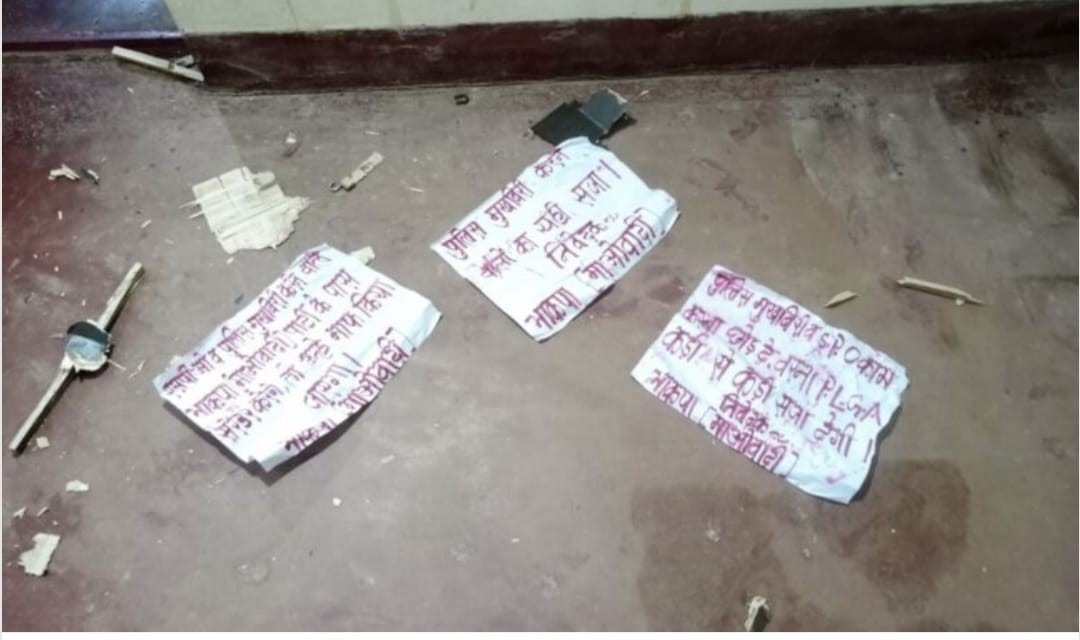 पुलिस मुखबिरी करने
वालो का यही सजा।
निवेदक:-
भाकपा (माओवादी)
पुलिस मुखबिरी करने वाले
भाकपा माओवादी पार्टी के पास
तो उन्हें माफ किया
जाएगा।
भाकपा (माओवादी)
पुलिस मुखबिरी व S.P.O काम
करना छोड़ दे वरना P.L.G.A
कड़ी से कड़ी सजा देगी।
निवेदक:-
भाकपा (माओवादी)